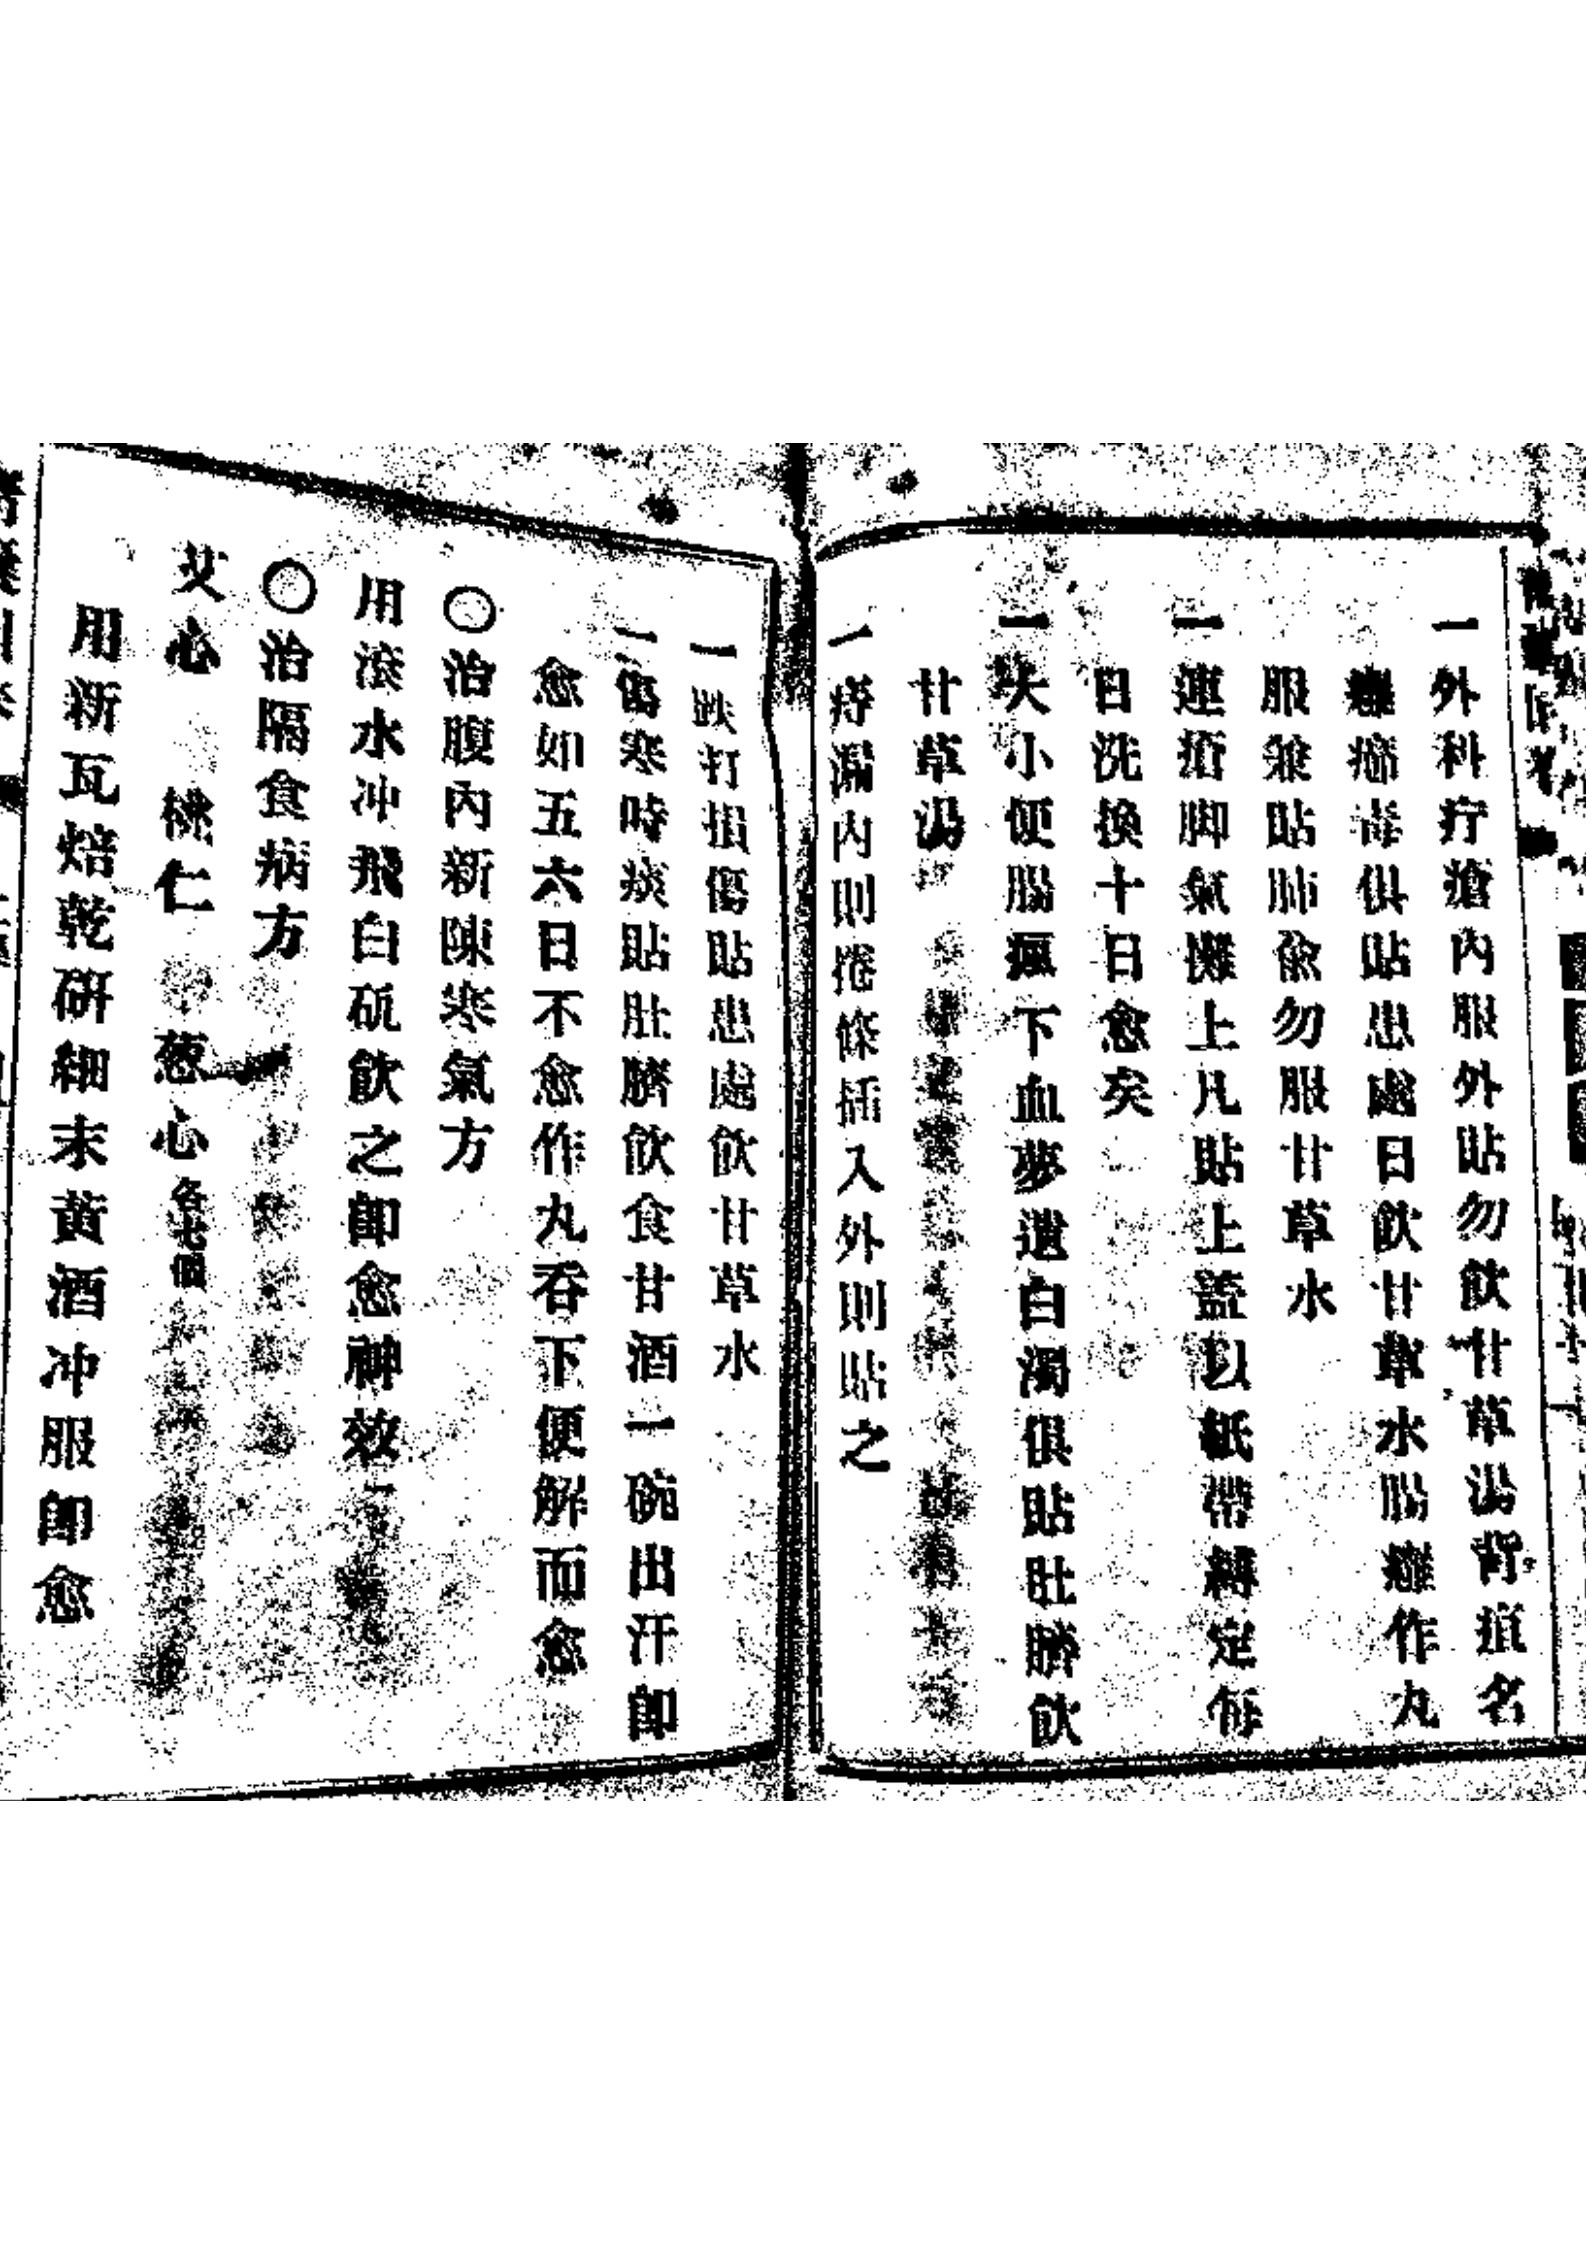 一外科疔瘡內服外貼勿飲甘草湯背疽名
癰瘡毒俱貼患處日飲甘草水腸癰作丸
服兼貼肺愈勿服甘草水
一連瘡脚氣攤上凡貼上盖以紙帶縛定每
日洗換十日愈矣
一大小便腸風下血夢遺白濁俱貼肚臍飲
甘草湯
一痔漏內則捲條插入外則貼之
一跌打損傷貼患處飲甘草水
一傷寒時痰貼肚臍飲食甘酒一碗出汗卽
愈如五六日不愈作丸吞下便解而愈
〇治腹內新陳寒氣方
用滾水冲飛白砒飲之卽愈神效
〇治隔食病方
艾心 桃仁 葱心各七個
用新瓦焙乾研細末黃酒冲服卽愈